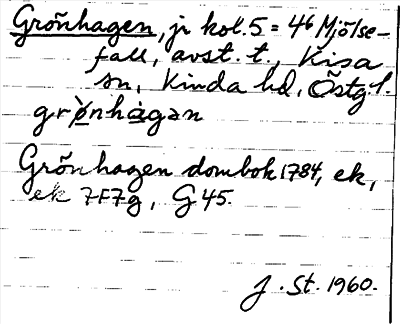 Grönhagen, jr kol. 5 = 4⁶ Mjölse-
fall, avst. t., Kisa
sn, Kinda hd, Östg. l.
grø̀nhàgan
Grönhagen dombok 1784, ek,
ek 7F7g, G 45.
J. St. 1960.